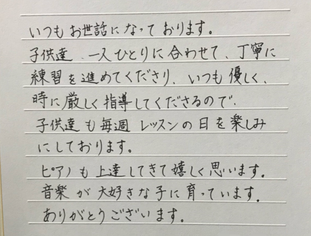 いつもお世話になっております。
子供達 一人ひとりに合わせて、丁寧に
練習を進めてくださり、いつも優しく、
時に厳しく指導してくださるので、
子供達も毎週 レッスンの日を楽しみ
にしております。
ピアノも上達してきて嬉しく思います。
音楽が大好きな子に育っています。
ありがとうございます。